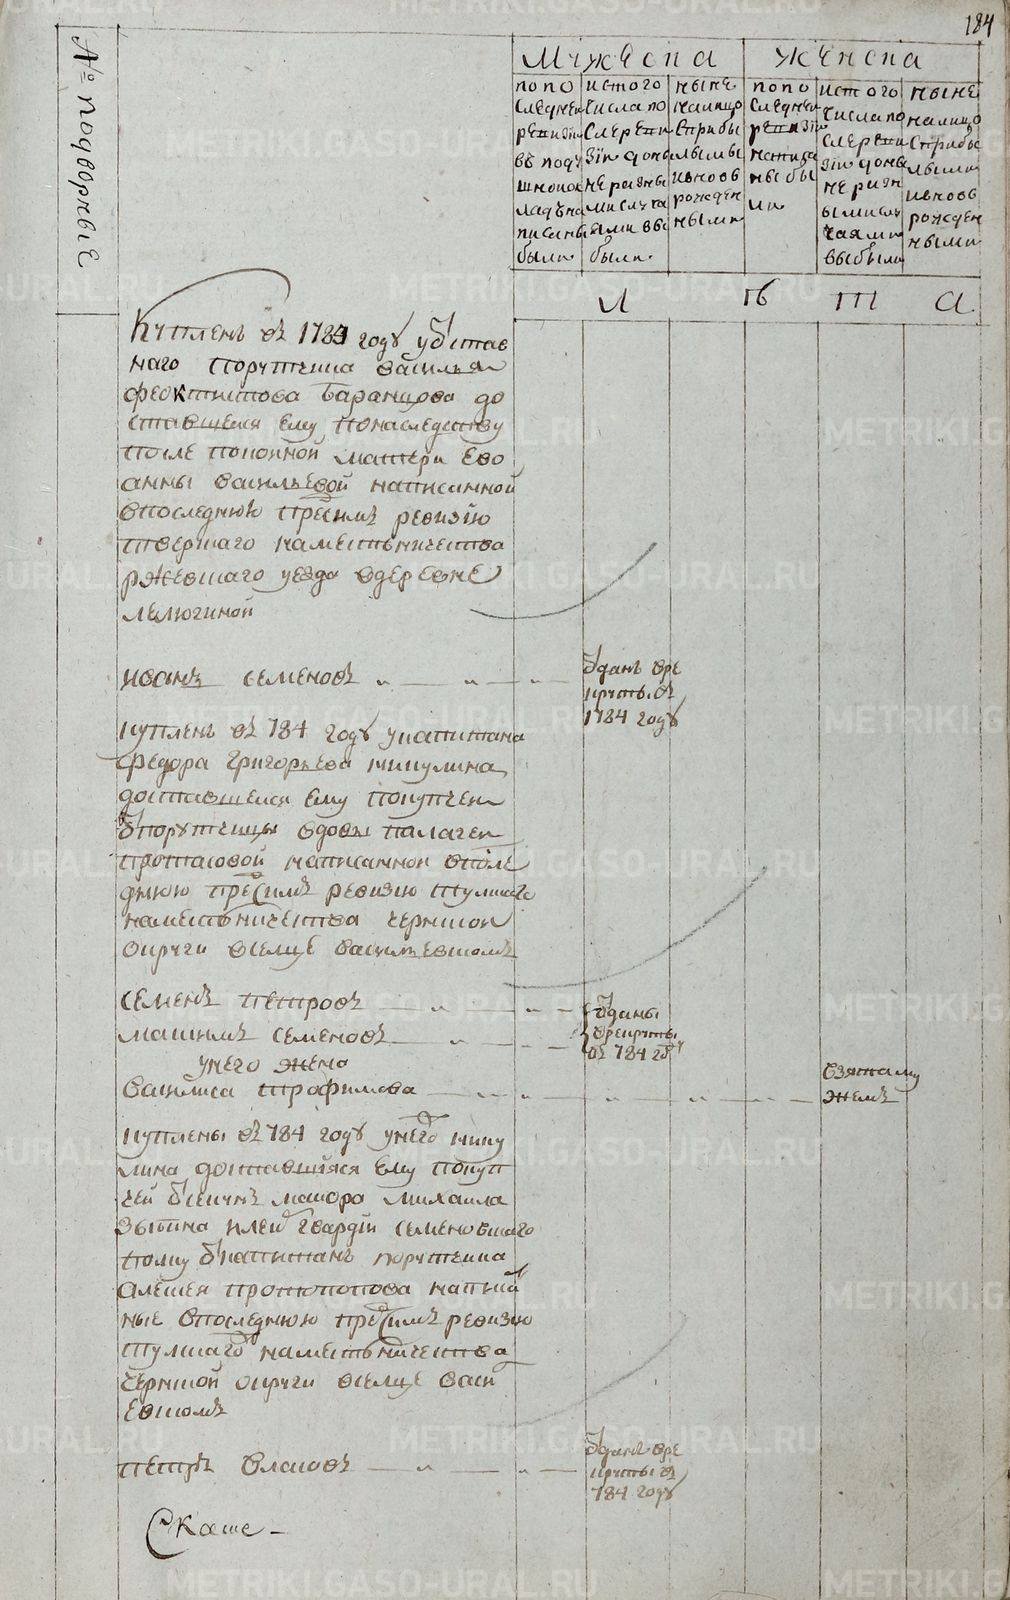 184
№ подворные
Мужеска
Женска
по по
следней
ревизїи
въ поду
шной ок
ладъ на
писаны
были
ис того
числа по
сле реви
зїи до ны
не разны
ми случа
ями вы
были
ныне
на лицо
с прибы
лыми
и вновь
рожден
ными
по по
следней
ревизїи
написа
ны бы
ли
ис того
числа по
сле реви
зїи до ны
не разн
ыми слу
чаями
выбыли
ныне
на лицо
с прибы
лыми
и вновь
рожден
ными
л ѣ т а
Куплен въ 1783 году у отстав
наго порутчика василья
феоктистова Баранцова до
ставшейся ему по наследству
после покойной матери Ево
анны васильевой написанной
в последнюю пресимъ ревизїю
тверскаго наместьничества
ржевскаго уезда в деревне
лелюгиной
иванъ семеновъ
отданъ в ре
круты въ
1784 году
куплен въ 784 году у капитана
федора григорьева микулина
доставшейся ему по купчей
от порутчицы вдовы палагеи
протасовой написанной в после
днюю пресимъ ревизию тулскаго
наместьничества чернской
округи в селце васильевскомъ
семенъ петровъ
максимъ семеновъ
отданы
в рекруты
въ 784 году
у него жена
василиса трофимова
взята к му
жемъ
куплены въ 784 году у него мику
лина доставшїяся ему по куп
чей от секунъ маиора михаила
зыбина и лейб гвардїи семеновскаго
полку от капитанъ порутчика
алексея протопопова написа
ные в последнюю пресимъ ревизию
тулскаго наместьничества
чернской округи в селце васил
евскомъ
петръ власовъ
отданъ в ре
круты въ
784 году
Скаше